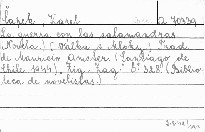 Čapek, Karel
La guerra con las salamandras
(Novela.) (Válka s Mloky.) Trad.
de Mauricio Amster. (Santiago de
Chile 1944) Zig-Zag 8° 323 (Biblio-
teca de novelistas.)